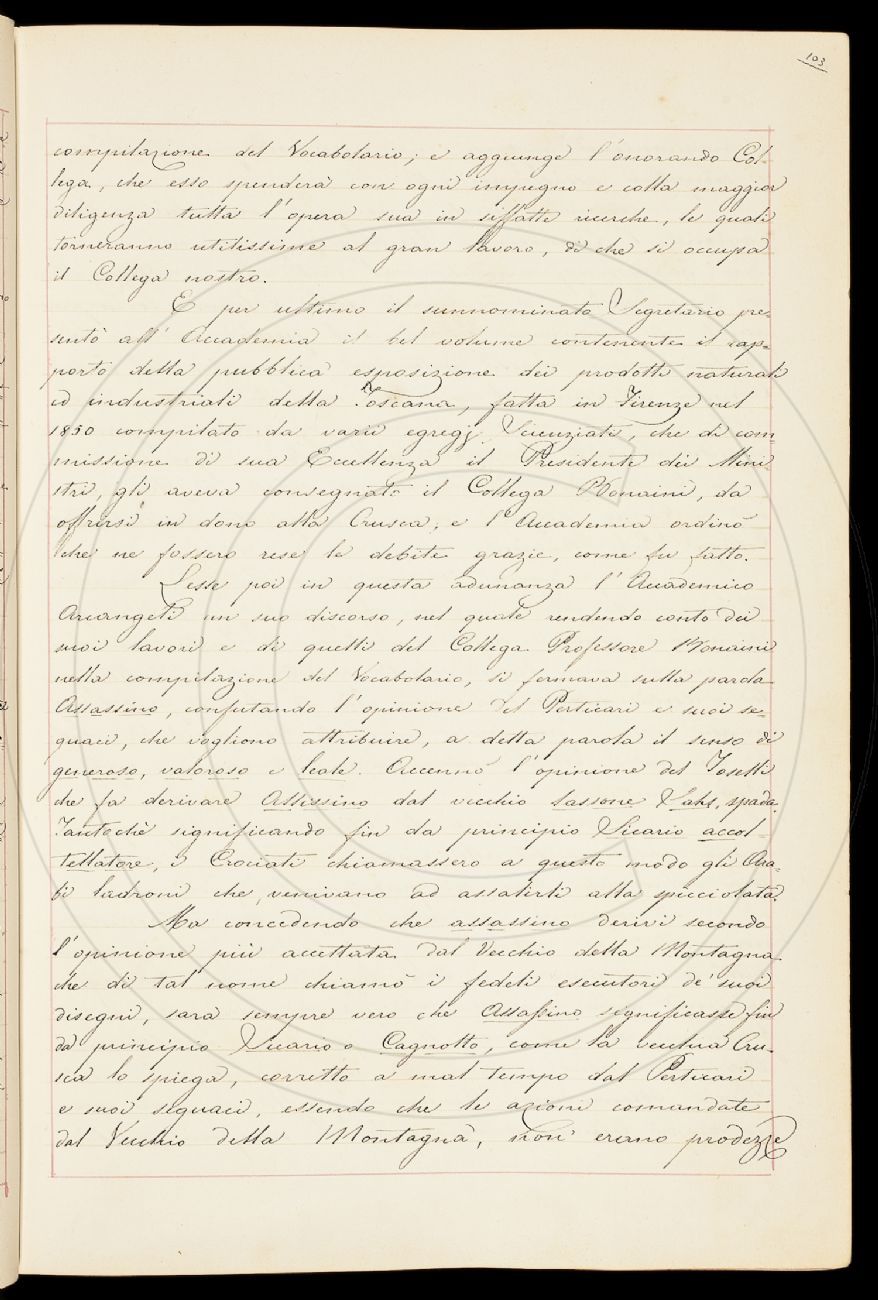 103
compilazione del Vocabolario; e aggiunge l'onorando Col-
lega, che esso spenderà con ogni impegno e colla maggior
diligenza tutta l'opera sua in siffatte ricerche, le quali
torneranno utilissime al gran lavoro, di che si occupa
il Collega nostro.
E per ultimo il sunnominato Segretario pre-
sentò all'Accademia il bel volume contenente il rap-
porto della pubblica esposizione dei prodotti naturali
ed industriali della Toscana, fatta in Firenze nel
1850 compilato da varii egregj Scienziati, che di com-
missione di sua Eccellenza il Presidente dei Mini
stri, gli aveva consegnato il Collega Bonaini, da
offrirsi in dono alla Crusca; e l'Accademia ordinò
che ne fossero rese le debite grazie, come fu fatto.
Lesse poi in questa adunanza l'Accademico
Arcangeli un suo discorso, nel quale rendendo conto dei
suoi lavori e di quelli del Collega Professore Bonaini
nella compilazione del Vocabolario, si fermava sulla parola
Assassino, confutando l'opinione del Perticari e suoi se-
guaci, che vogliono attribuire, a detta parola il senso di
generoso, valoroso e leale. Accennò l'opinione del Toselli
che fa derivare Assissino dal vecchio sassone Sahs, spada.
Tantochè significando fin da principio Sicario accol-
tellatore, i Crociati chiamassero a questo modo gli Ara-
bi ladroni che venivano ad assalirli alla spicciolata.
Ma concedendo che assassino derivi secondo
l'opinione più accettata dal Vecchio della Montagna
che di tal nome chiamò i fedeli esecutori de' suoi
disegni, sarà sempre vero che Assassino significasse fin
da principio Sicario o Cagnotto, come la vecchia Cru-
sca lo spiega, corretto a mal tempo dal Perticari
e suoi seguaci, essendo che le azioni comandate
dal Vecchio della Montagna, non erano prodezze